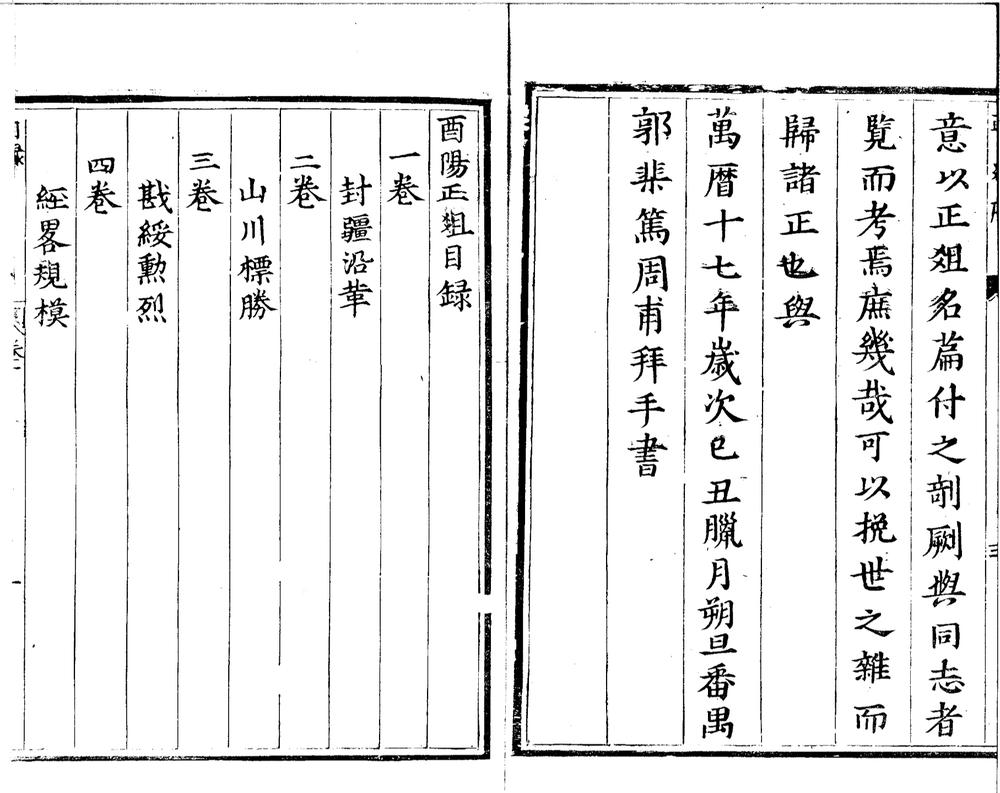 意以正爼名篇付之剞劂與同志者
覽而考焉庶幾哉可以挽世之雜而
歸諸正也與
萬曆十七年歲次己丑臘月朔旦番禺
郭棐篤周甫拜手書
酉陽正爼目録
一卷
封疆沿革
二卷
山川標勝
三卷
戡綏勳烈
四卷
經畧規模